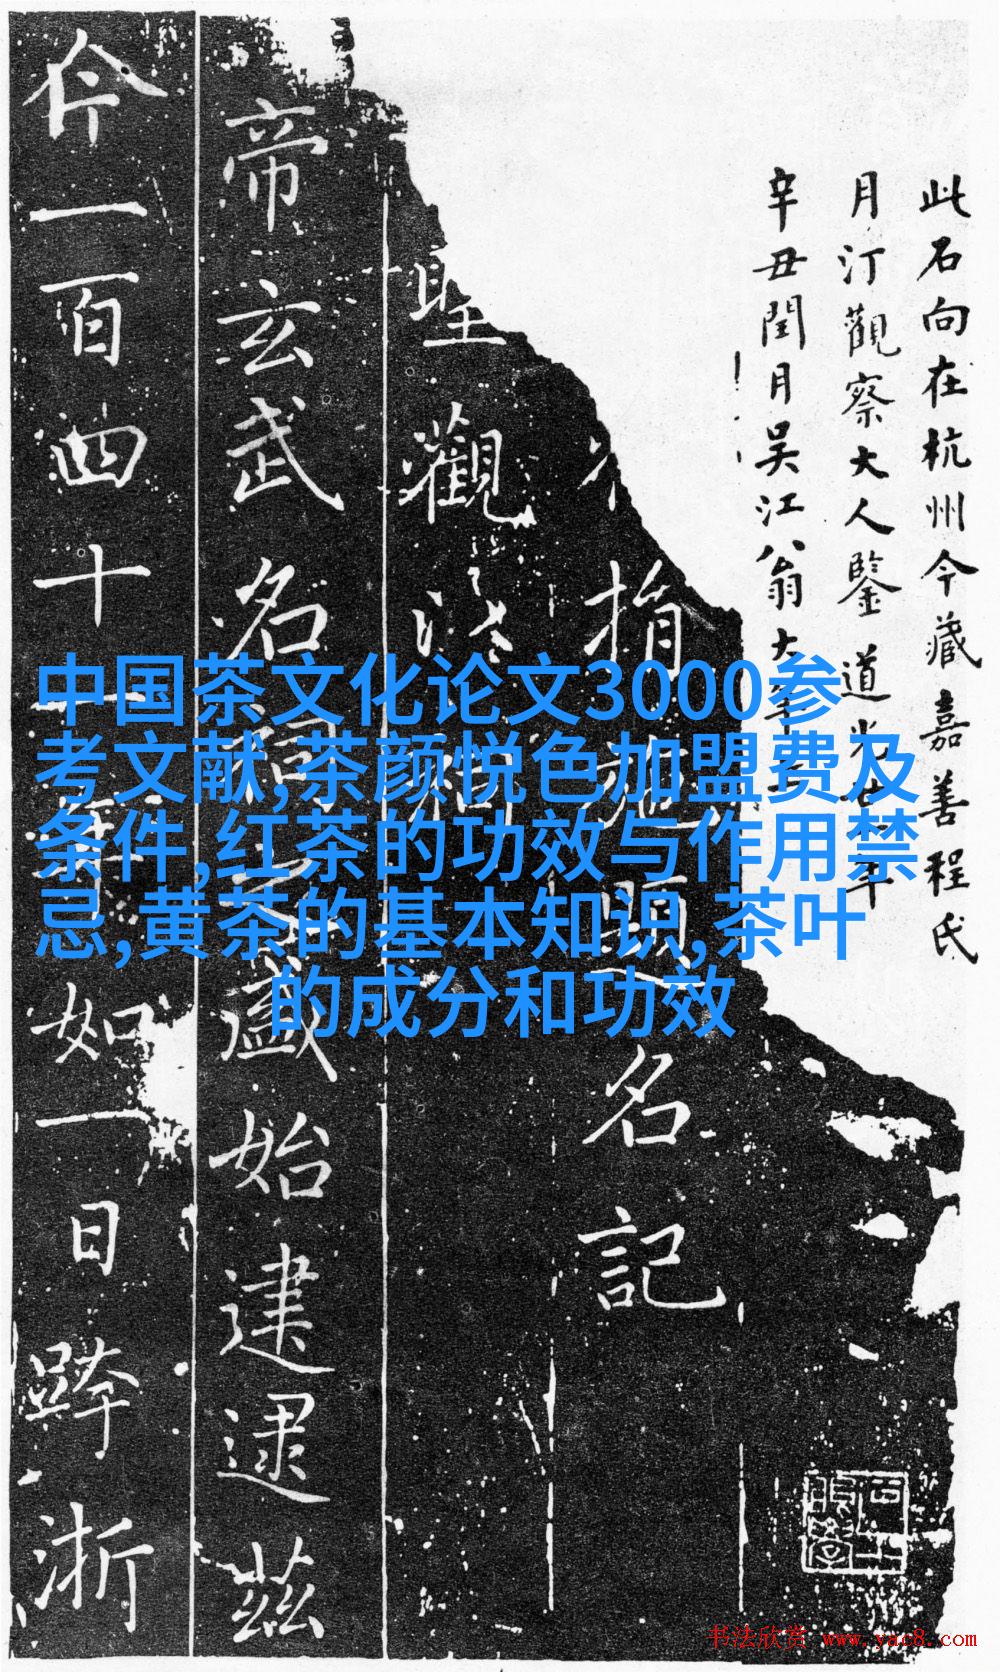 此石向在杭州今藏嘉善程氏
月汀觀察大人鑒道光廿一年
辛丑閏月吳江翁大年
指
名記
聖觀
帝玄武名
盛始建逮茲
今一百四十
年如一日跨浙
中国茶文化论文3000参
考文献,茶颜悦色加盟费及
条件,红茶的功效与作用禁
忌,黄茶的基本知识,茶叶
的成分和功效
书法欣赏 www.yac8.com